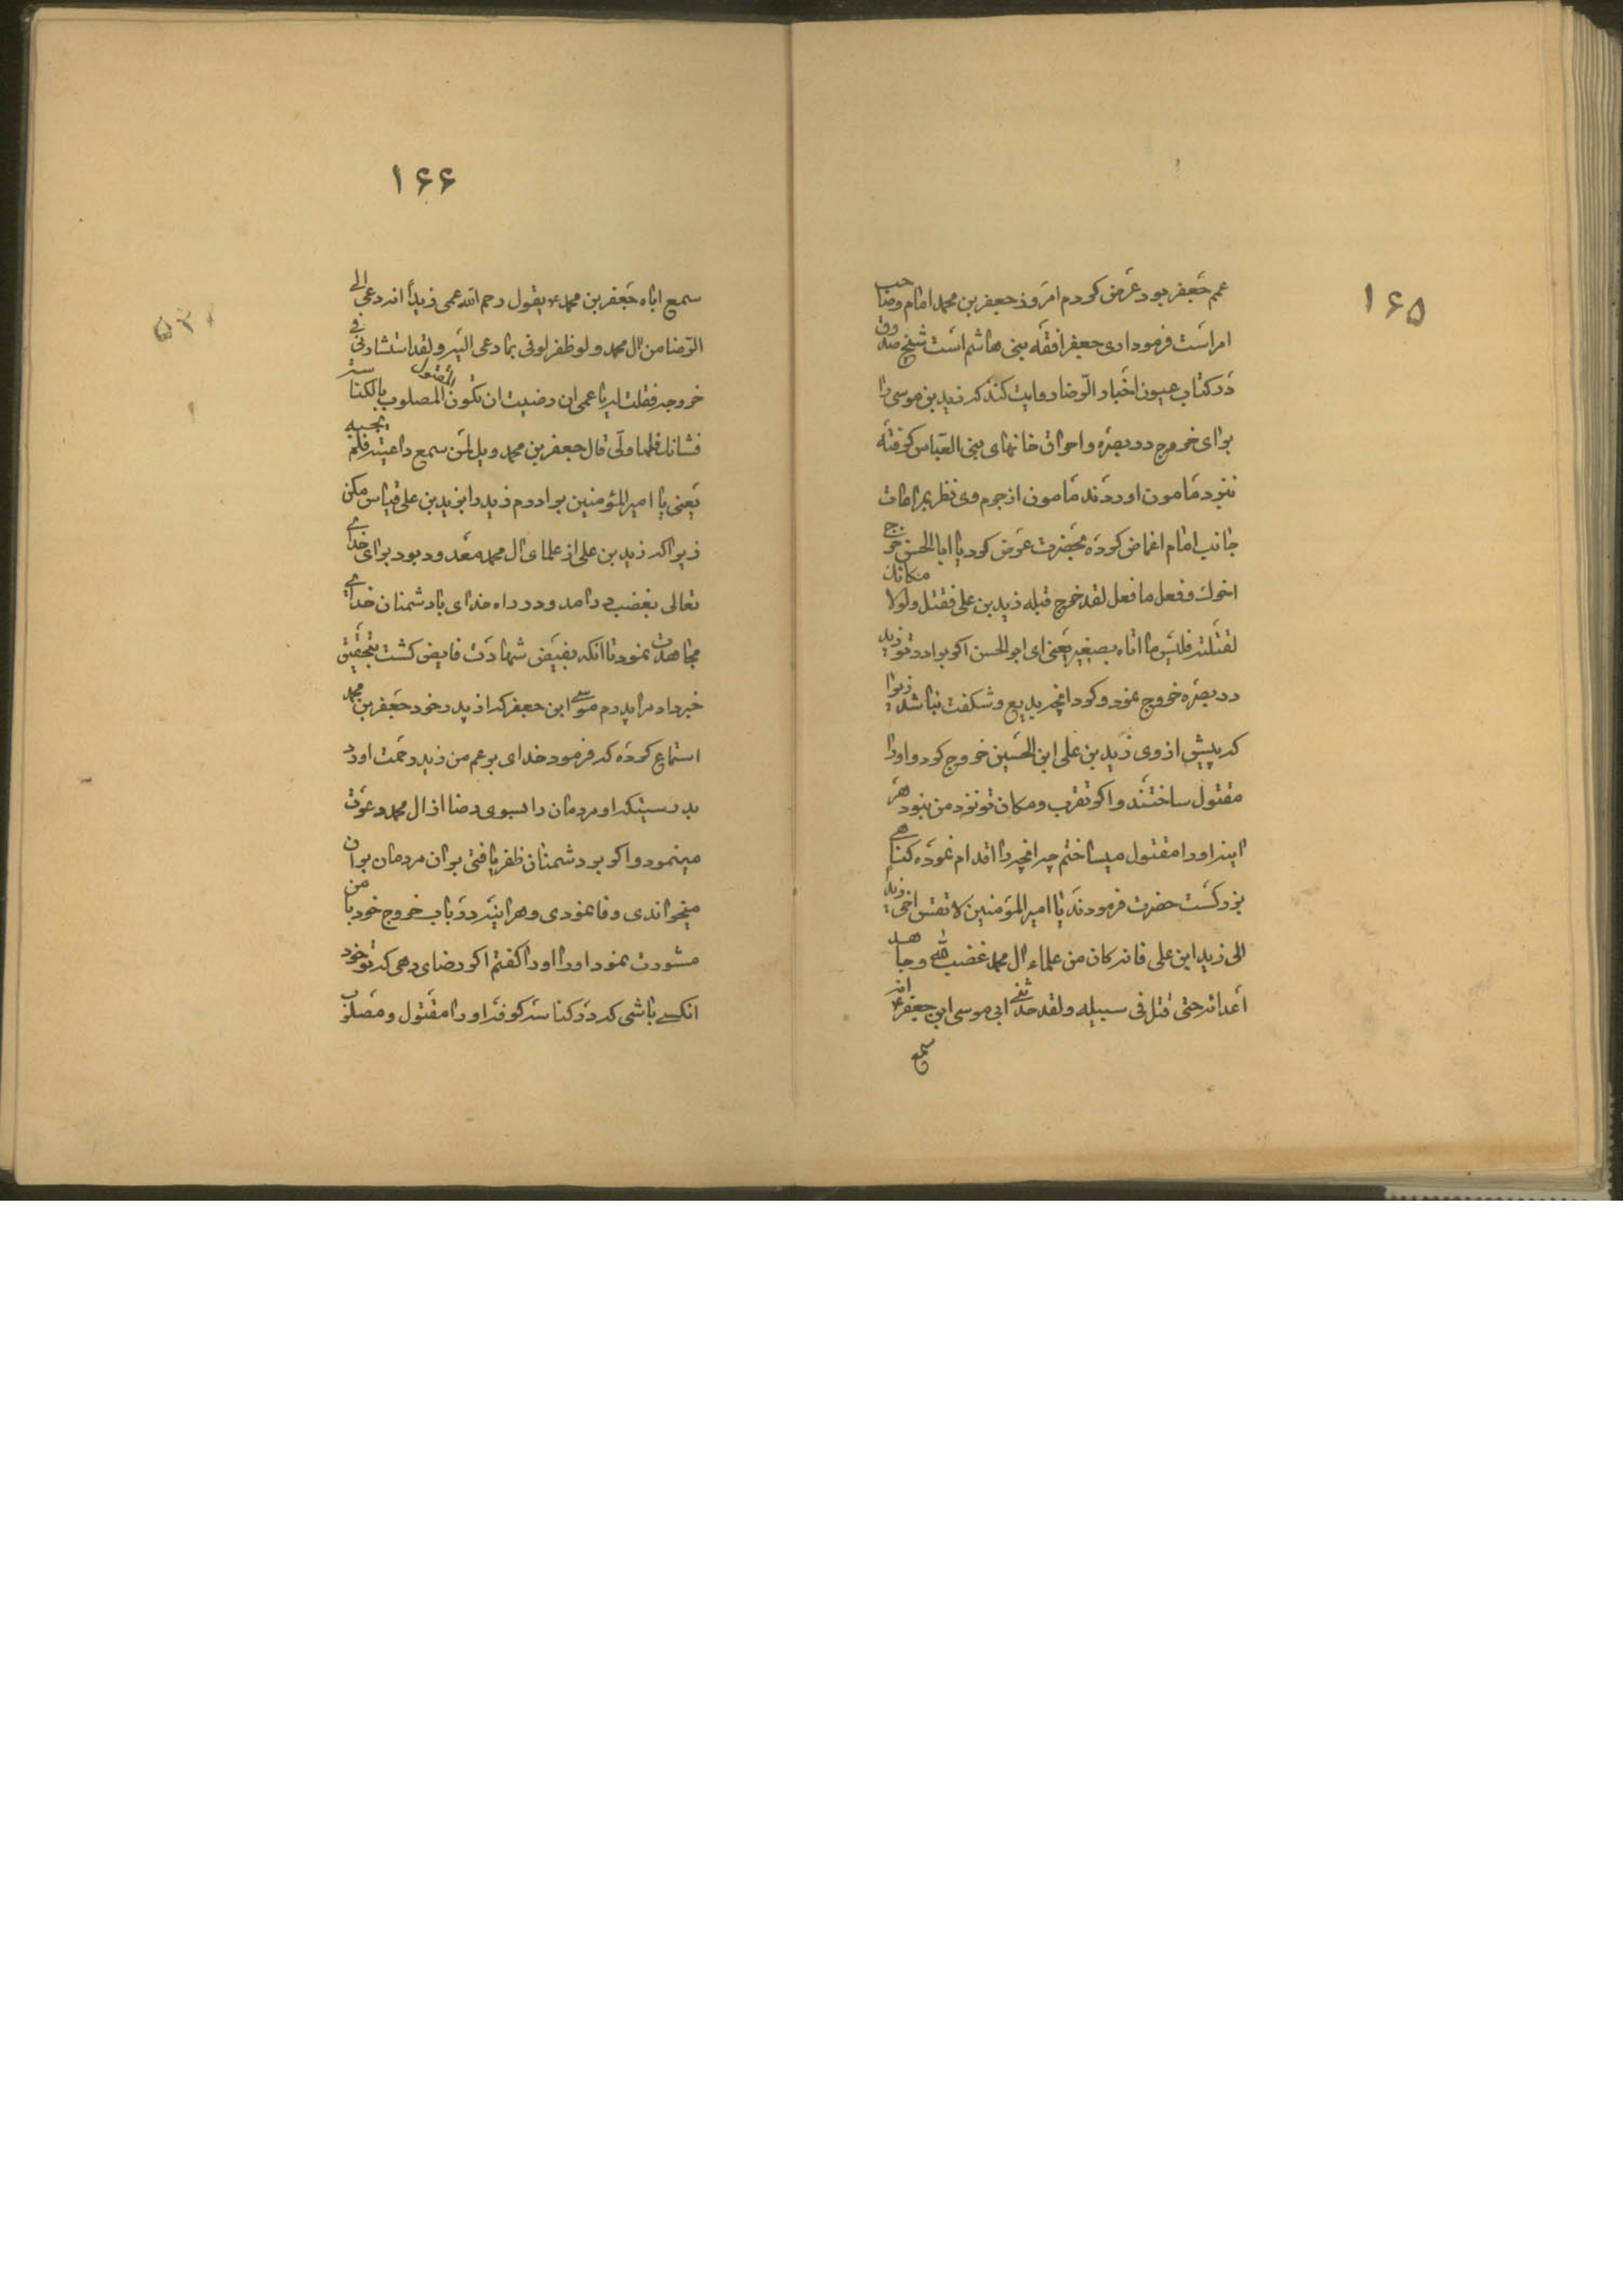 ۱۶۵
عم جعفر بود عرض کردم امروز جعفر بن محمد امام وصاحب
امر است فرمود اری جعفر افقه بنی هاشم است شیخ صدوق
در کتاب عیون اخبار الرضا روایت کند که زید بن موسی را
برای خروج در بصره و احراق خانهای بنی العباس گرفته
بنزد مامون اوردند مامون از جرم وی نظر بمراعات
جانب امام اغماض کرده بحضرت عرض کرد یا ابا الحسن خرج
اخوك وفعل ما فعل لقد خرج قبله زید بن علی فقتل ولولا مکانك
لقتلته فلیس ما اتاه بصغیر یعنی ای ابو الحسن اگر برادر تو زید
در بصره خروج نمود و کرد انچه بدیع و شگفت نباشد زیرا
که پیش از وی زید بن علی ابن الحسین خروج کرد و اورا
مقتول ساختند و اگر تقرب و مکان تو نزد من نبود هر
اینه اورا مقتول میساختم چه انچه را اقدام نموده گناهی
بزرگست حضرت فرمودند یا امیر المؤمنین لا تقس اخی زیدا
الی زید ابن علی فانه کان من علماء ال محمد غضب لله وجاهد
أعدائه حتی قتل فی سبیله ولقد حدثنی ابی موسی ابن جعفر ع انه
سمع
۱۶۶
سمع اباه جعفر بن محمد ع یقول رحم الله عمی زیدا انه دعی الی
الرضا من ال محمد ولو ظفر لوفی بما دعی الیه ولقد استشارنی فی
خروجه فقلت له یا عمی ان رضیت ان تکون المقتول المصلوب بالکناسة
فشانك فلما ولی قال جعفر بن محمد ویل لمن سمع داعیته فلم یجبه
یعنی یا امیر المؤمنین برادرم زید را بزید بن علی قیاس مکن
زیرا که زید بن علی از علمای ال محمد معدود بود برای خدای
تعالی بغضب درامد و در راه خدای با دشمنان خدای
مجاهدت نمود تا انکه بفیض شهادت فایض گشت بتحقیق
خبر داد مرا پدرم موسی ابن جعفر که از پدر خود جعفر بن محمد
استماع کرده که فرمود خدای بر عم من زید رحمت اورد
بدرستیکه او مردمان را بسوی رضا از ال محمد دعوت
مینمود و اگر بر دشمنان ظفر یافتی بر ان مردمان بران
میخواندی وفا نمودی و هراینه در باب خروج خود با من
مشورت نمود اورا گفتم اگر رضای دهی که تو خود
انکسی باشی که در کناسه کوفه اورا مقتول و مصلوب